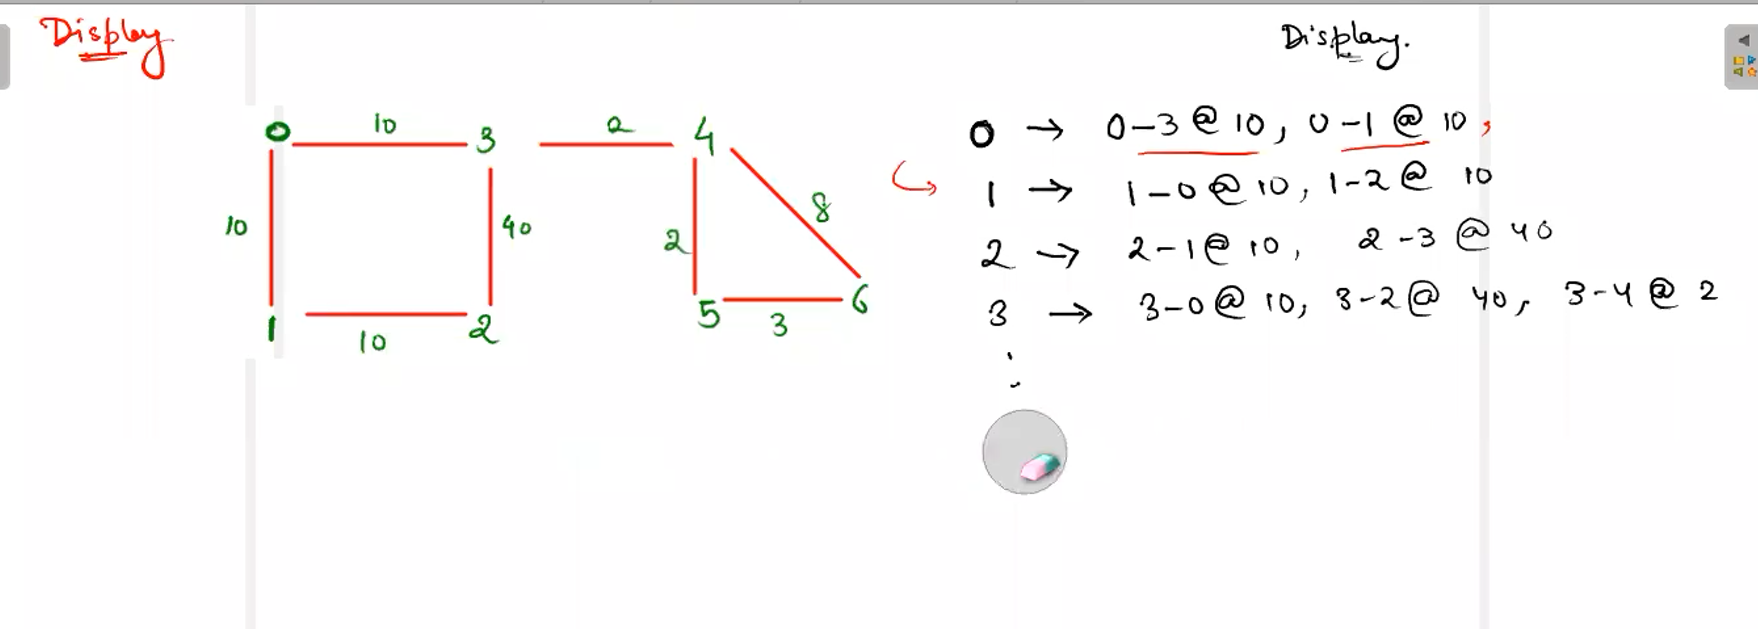 Display
Display.
10
2
0
3
4
10
40
2
8
1
2
5
6
10
3
0 → 0-3 @ 10, 0-1 @ 10,
1 → 1-0 @ 10, 1-2 @ 10
2 → 2-1 @ 10, 2-3 @ 40
3 → 3-0 @ 10, 3-2 @ 40, 3-4 @ 2